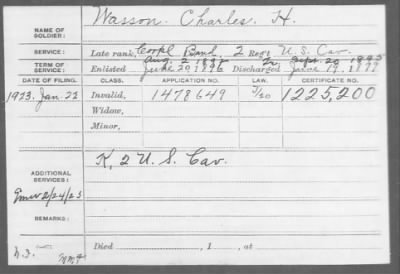 Wasson, Charles H.
NAME OF SOLDIER:
SERVICE: Late rank, Corpl Band, 2 Regt U.S. Cav.
TERM OF SERVICE: Enlisted Aug. 2, 1885 Discharged Sept. 20, 1895
June 20, 1896 June 19, 1899
DATE OF FILING. CLASS. APPLICATION NO. LAW. CERTIFICATE NO.
1923, Jan. 22 Invalid, 1478649 1225,200
Widow,
Minor,
ADDITIONAL SERVICES: K, 2 U.S. Cav.
2/24/23
REMARKS:
Died , 1 , at